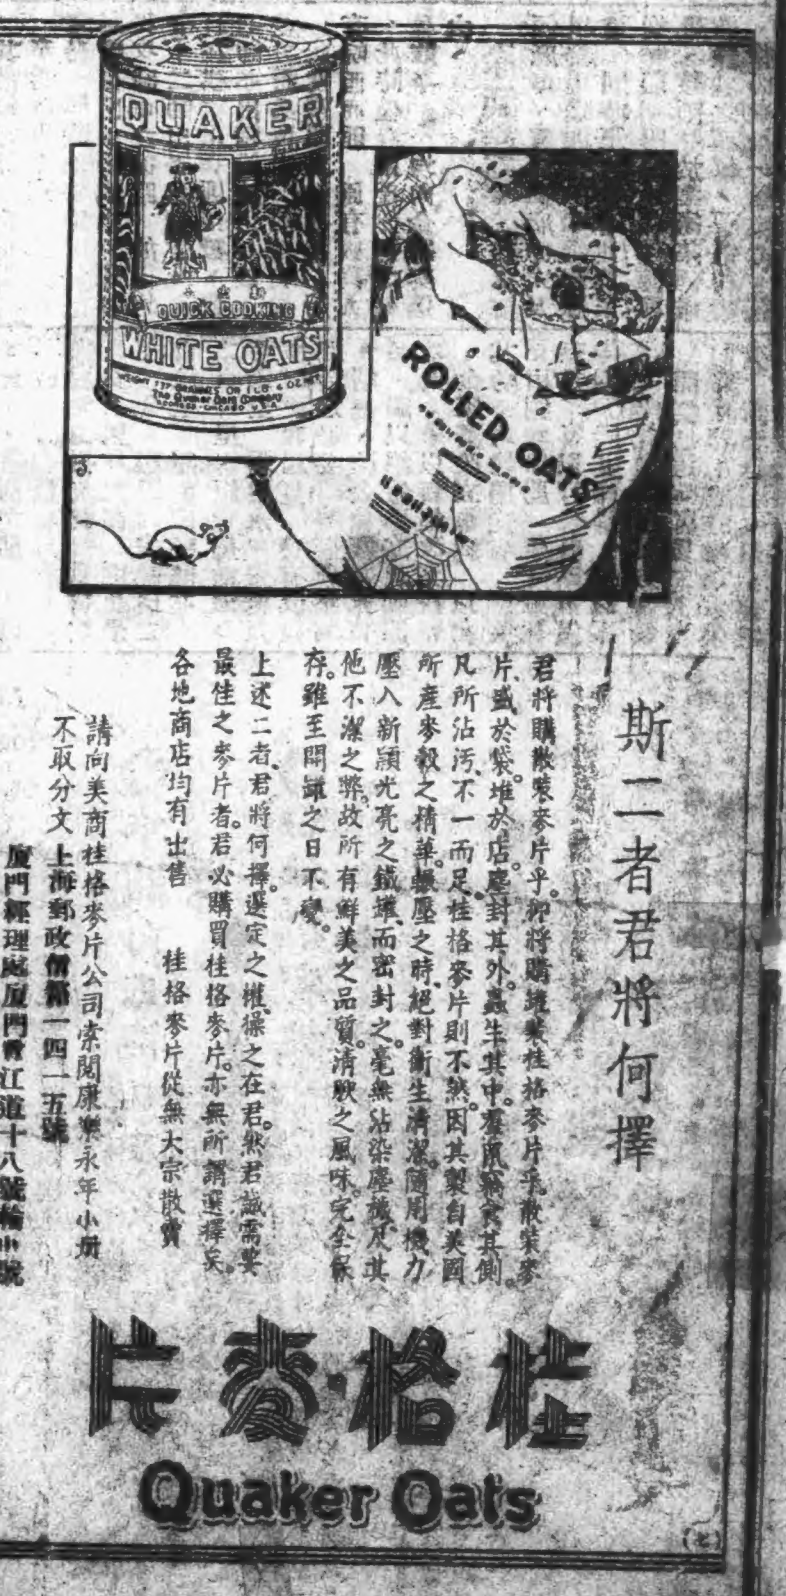 QUAKER
QUICK COOKING
WHITE OATS
WEIGHT 737 GRAMMES OR 1 LB 4 OZ NET
The Quaker Oats Company
ADDRESS-CHICAGO U.S.A.
ROLLED OATS
斯二者君將何擇
君將購散裝麥片乎。抑將購罐裝桂格麥片乎。散裝麥
片、盛於袋、堆於店。塵封其外。蟲生其中。羣鼠竊食其側。
凡所沾汚、不一而足。桂格麥片則不然。因其製自美國
所產麥榖之精華。輾壓之時、絕對衞生淸潔。隨用機力
壓入新穎光亮之鐵罐、而密封之。毫無沾染塵穢、及其
他不潔之弊。故所有鮮美之品質。淸腴之風味。完全保
存。雖至開罐之日不變。
上述二者、君將何擇。選定之權、操之在君。然君誠需要
最佳之麥片者。君必購買桂格麥片。亦無所謂選擇矣。
各地商店均有出售 桂格麥片從無大宗散賣
請向美商桂格麥片公司索閱康樂永年小册
不取分文 上海郵政信箱一四一五號
廈門經理處廈門 江道十八號 號
桂格麥片
Quaker Oats
(七)